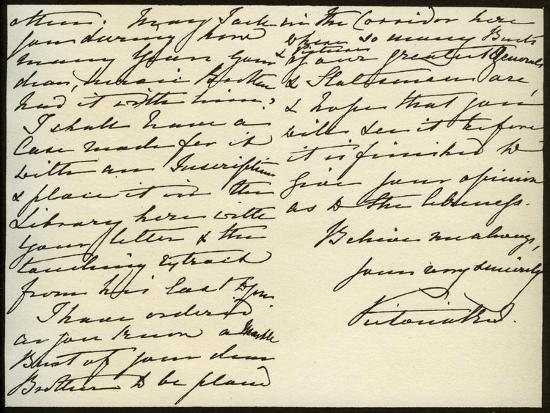 other. May I ask
you during how
many years your
dear, heroic Brother
had it with him?
I shall have a
Case made for it
with an Inscription
& place it in the
Library here with
your letter & the
touching extract
from his last to you.
I have ordered,
as you know a Marble
Bust of your dear
Brother to be placed
in the Corridor here
where so many Busts
& Pictures
of our greatest Generals
& Statesmen are,
& hope that you
will see it before
it is finished to
give your opinion
as to the likeness.
Believe me always,
yours very sincerely
Victoria R.I.